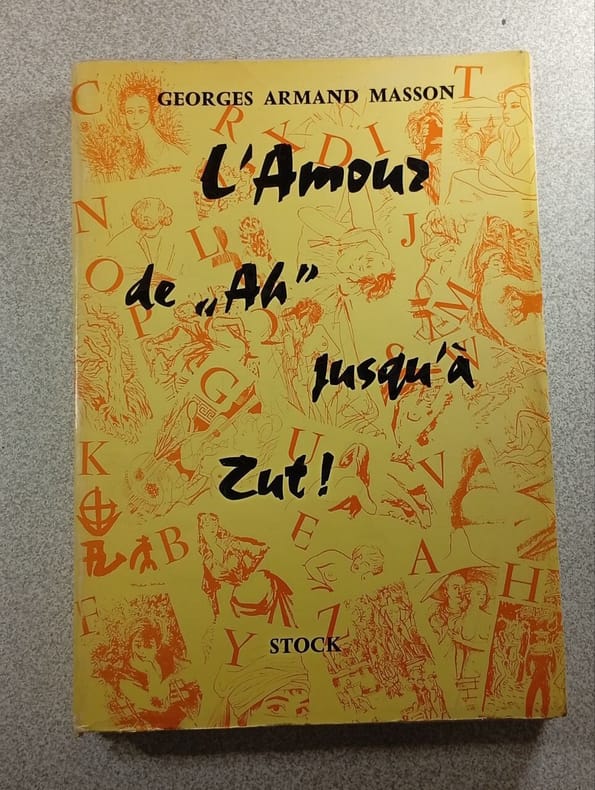 GEORGES ARMAND MASSON
L'Amour
de „Ah”
jusqu'à
Zut!
STOCK
C
R
X
D
I
T
N
L
J
O
P
Q
S
E
M
W
G
K
U
V
B
E
A
H
F
Y
Z